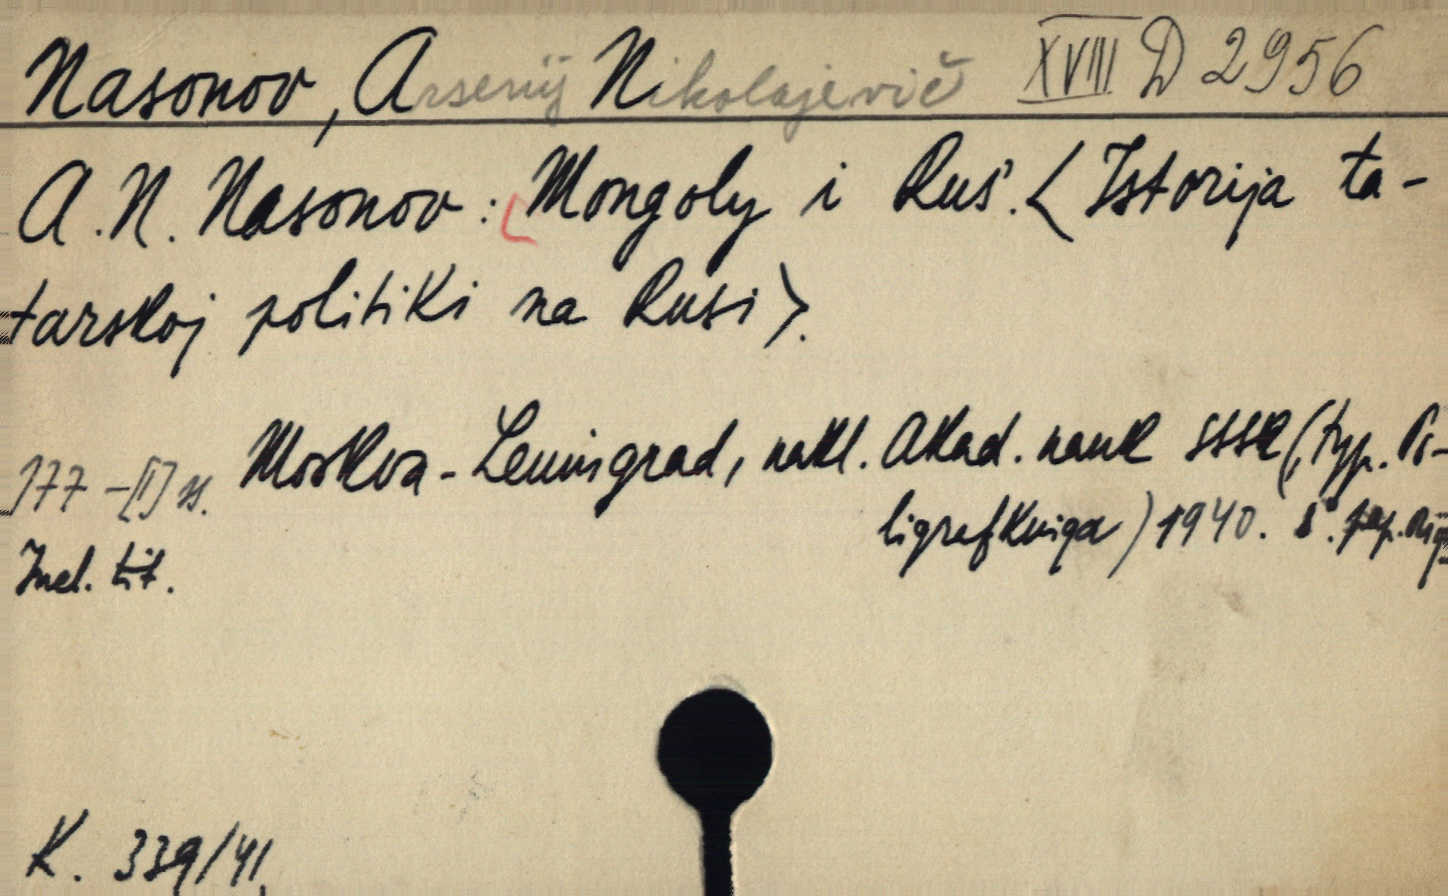 Nasonov, Arsenij Nikolajevič XVIII D 2956
A. N. Nasonov: [Mongoly i Rus'. <Istorija ta-
tarskoj politiki na Rusi>.
177 -[I] s. Moskva - Leningrad, nakl. Akad. nauk SSSR (, typ.
ligrafkniga) 1940. 8°.
tit.
K. 339/41.